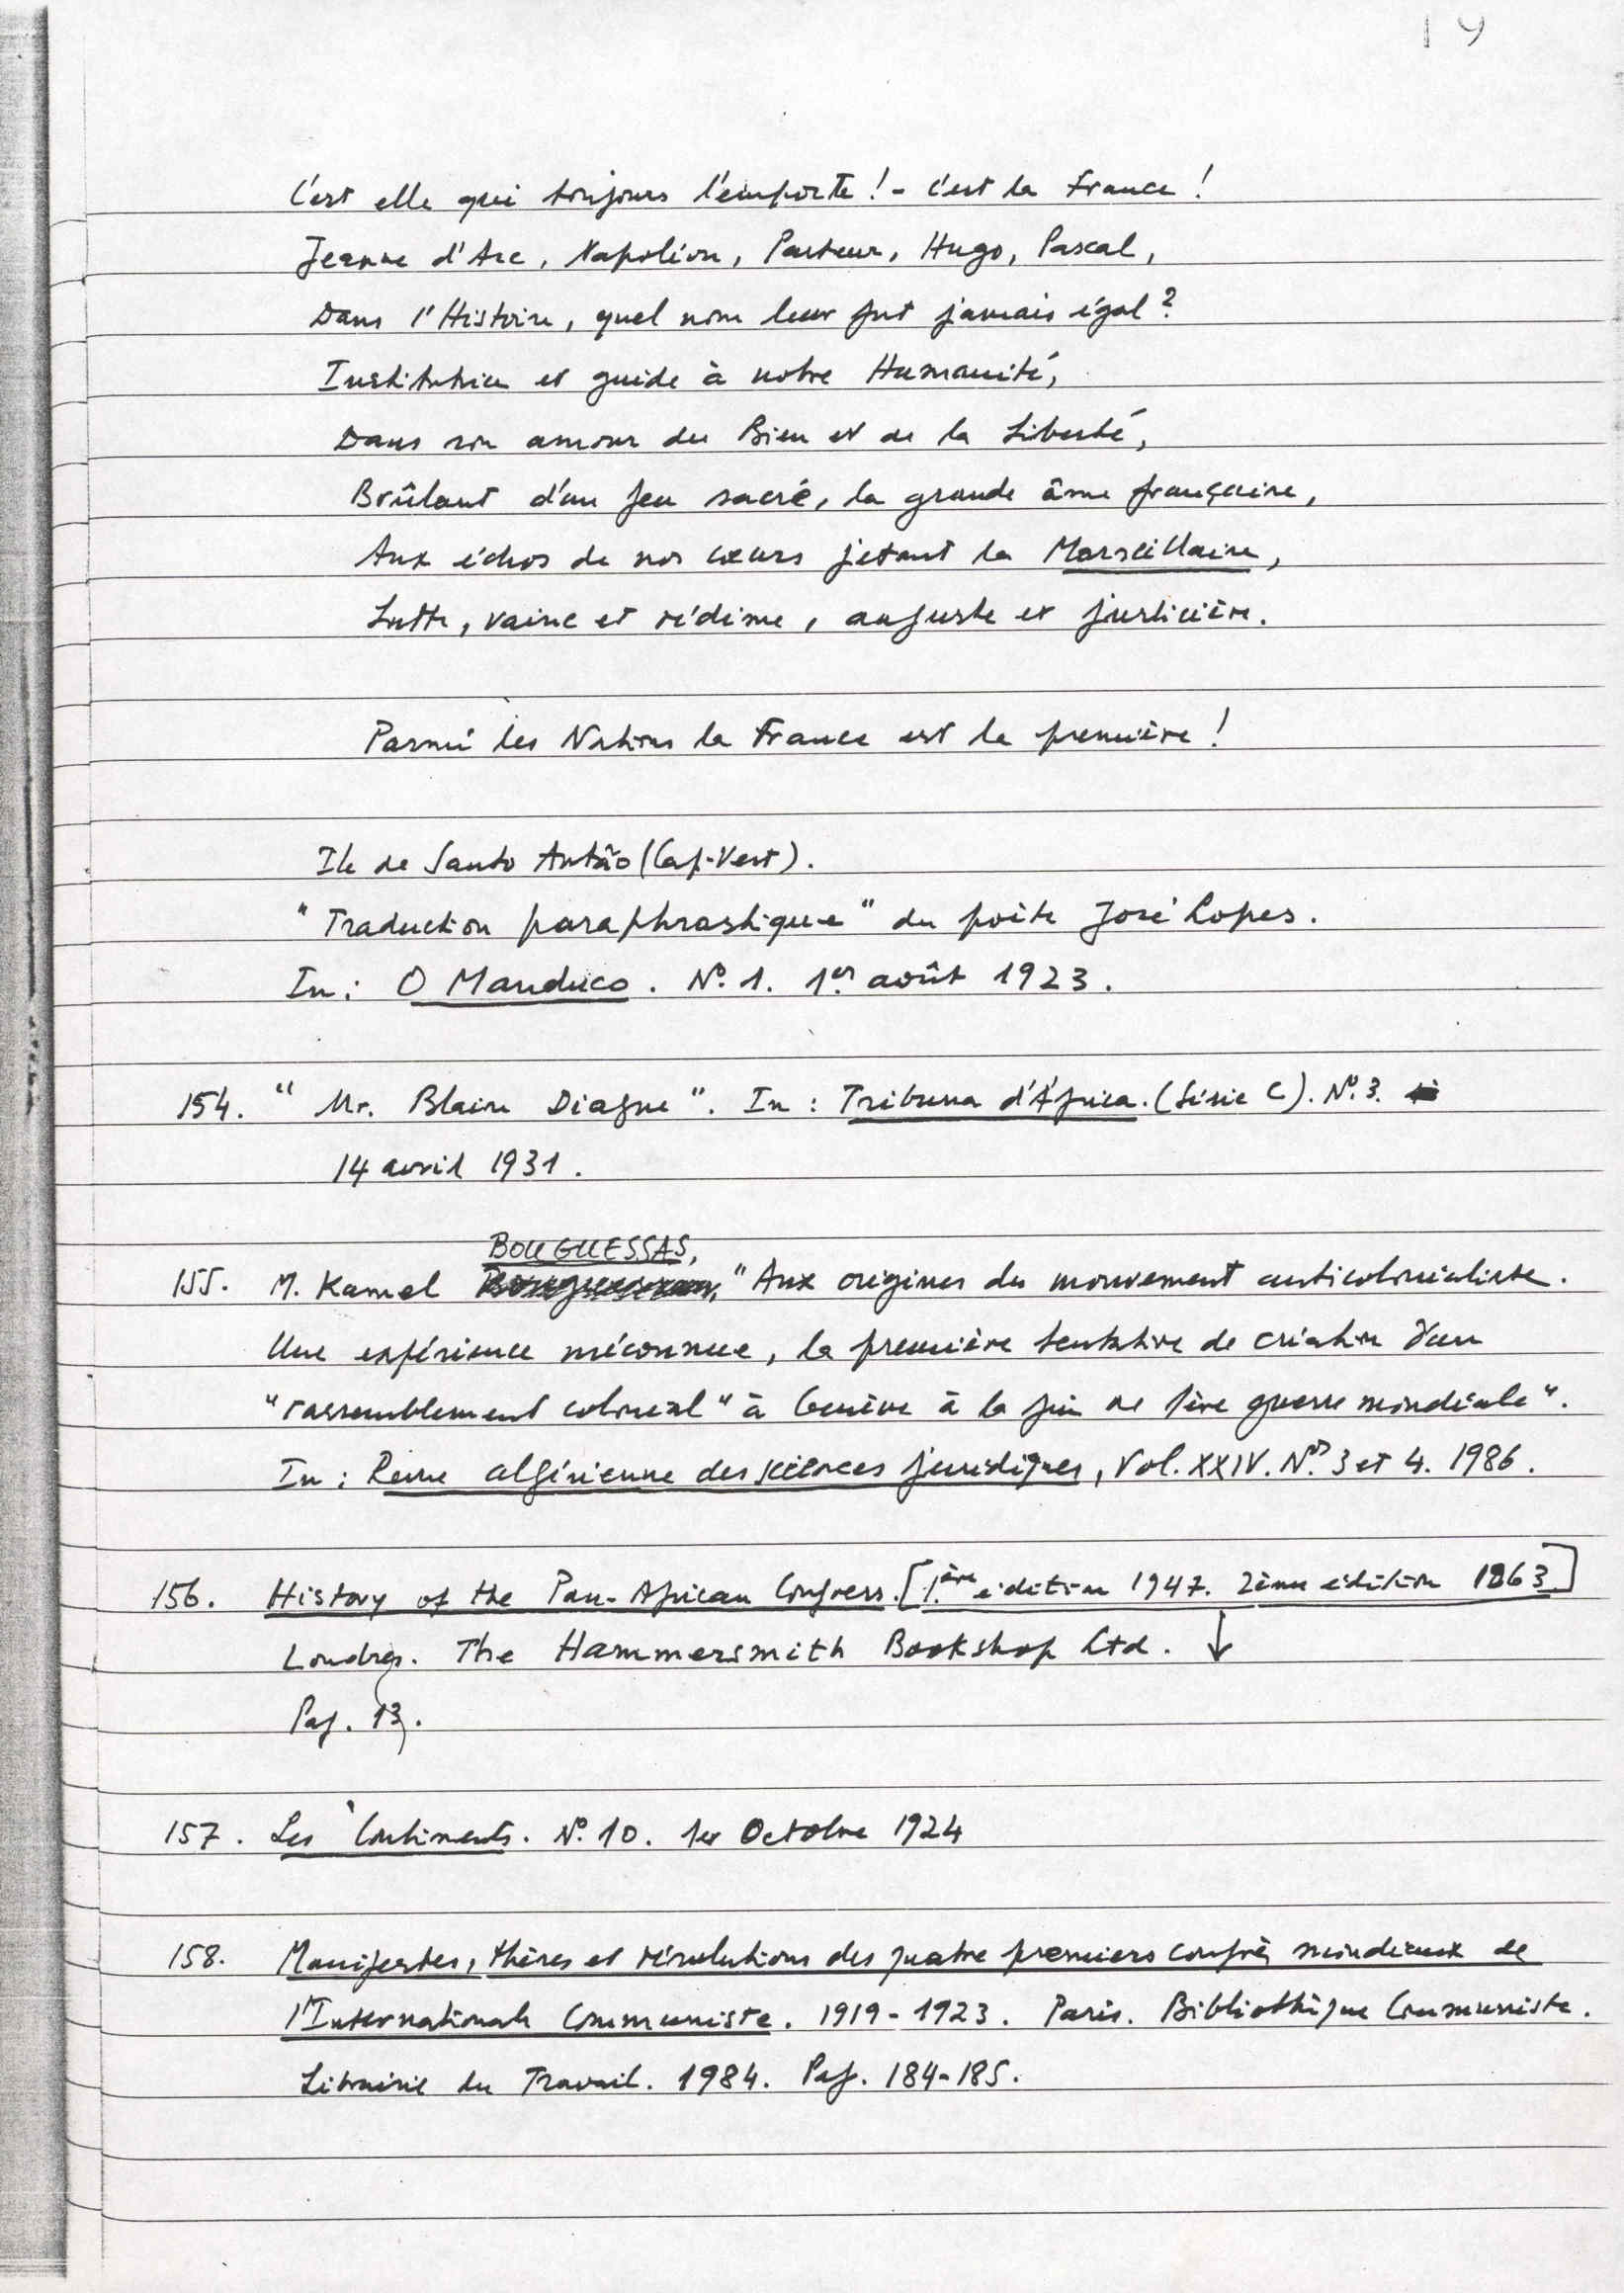 19
C'est elle qui toujours l'emporte! - C'est la France!
Jeanne d'Arc, Napoléon, Pasteur, Hugo, Pascal,
Dans l'Histoire, quel nom leur fut jamais égal?
Institutrice et guide à notre Humanité,
Dans son amour du Bien et de la Liberté,
Brûlant d'un feu sacré, la grande âme française,
Aux échos de nos cœurs jetant la Marseillaise,
Lutte, vainc et rédime, auguste et justicière.
Parmi les Nations la France est la première!
Ile de Santo Antão (Cap-Vert).
"Traduction paraphrastique" du poète José Lopes.
In: O Manduco. Nº 1. 1er août 1923.
154. "Mr. Blaise Diagne". In: Tribuna d'África. (Série C). Nº 3.
14 avril 1931.
BOUGUESSAS,
155. M. Kamel "Aux origines du mouvement anticolonialiste.
Une expérience méconnue, la première tentative de création d'un
"rassemblement colonial" à Genève à la fin de 1ère guerre mondiale".
In: Revue algérienne des sciences juridiques, Vol. XXIV. Nos 3 et 4. 1986.
156. History of the Pan-African Congress. [1.ère édition 1947. 2ème édition 1963]
Londres. The Hammersmith Bookshop Ltd. ↓
Pag. 13.
157. Les Continents. Nº 10. 1er Octobre 1924
158. Manifestes, thèses et résolutions des quatre premiers congrès mondiaux de
l'Internationale Communiste. 1919-1923. Paris. Bibliothèque Communiste.
Librairie du Travail. 1984. Pag. 184-185.